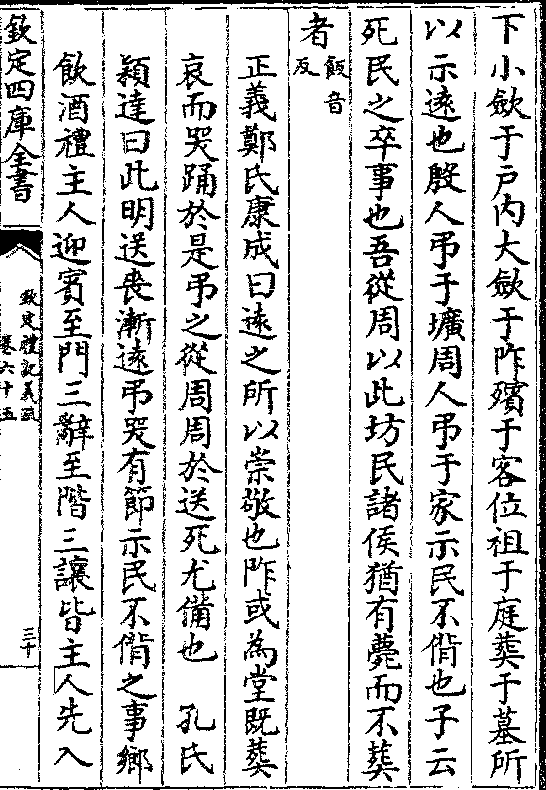 下小斂于戶内大斂于阼殯于客位祖于庭葬于墓所
以示逺也殷人弔于壙周人弔于家示民不偝也子云
死民之卒事也吾從周以此坊民諸侯猶有薨而不葬
者
飯音
反
正義鄭氏康成曰逺之所以崇敬也阼或為堂既葬
哀而哭踊於是弔之從周周於送死尤備也 孔氏
潁達曰此明送喪漸逺弔哭有節示民不偝之事鄉
飲酒禮主人迎賓至門三辭至階三讓皆主人先入
欽定四庫全書
欽定禮記義疏
卷六十五
三十